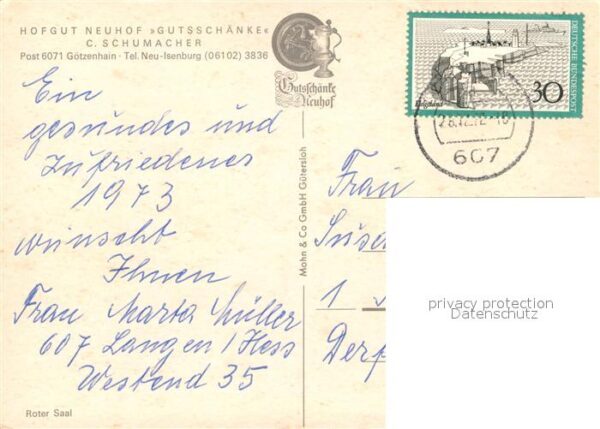 HOFGUT NEUHOF »GUTSSCHÄNKE«
C. SCHUMACHER
Post 6071 Götzenhain · Tel. Neu-Isenburg (06102) 3836
Gutsschänke
Neuhof
DEUTSCHE BUNDESPOST
Helgoland
30
607
Ein
gesundes und
zufriedenes
1973
wünscht
Ihnen
Frau Marta Müller
607 Langen / Hess
Westend 35
Roter Saal
Mohn & Co GmbH Gütersloh
Frau
1
privacy protection
Datenschutz